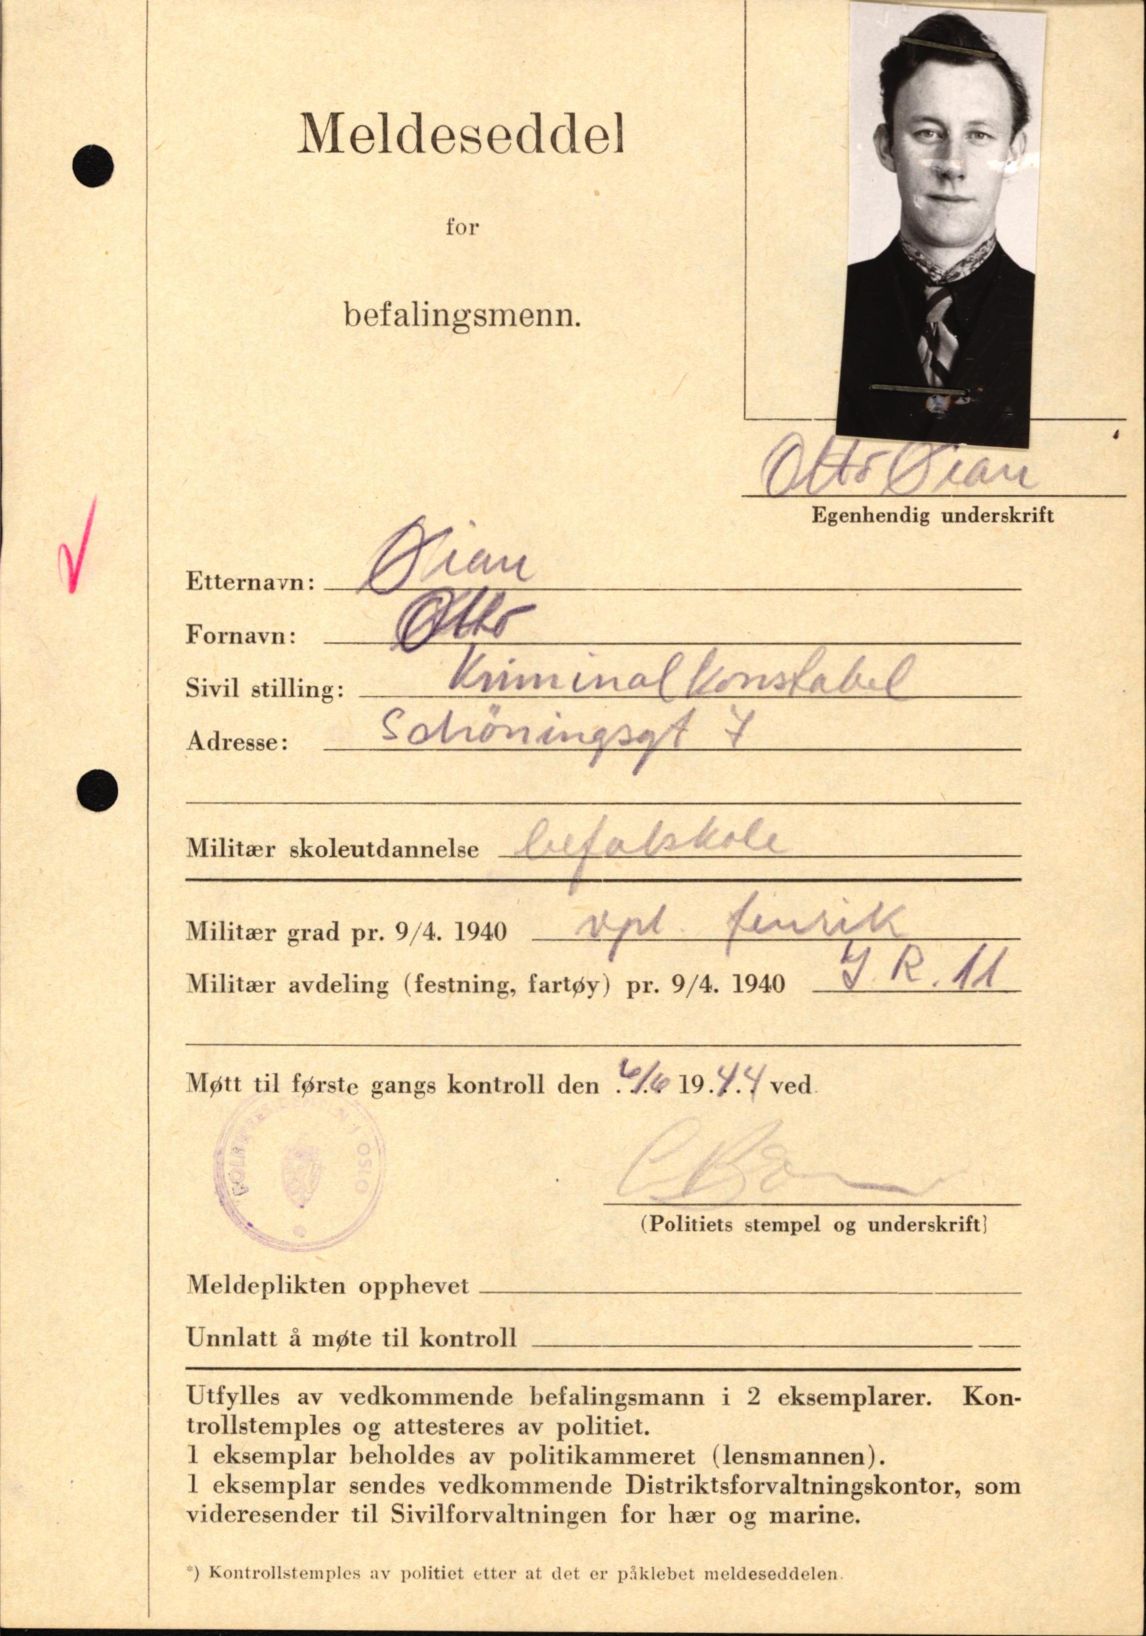 Meldeseddel
for
befalingsmenn.
Otto Øian
Egenhendig underskrift
Etternavn: Øian
Fornavn: Otto
Sivil stilling: Kriminalkonstabel
Adresse: Schöningsgt 7
Militær skoleutdannelse befalskole
Militær grad pr. 9/4. 1940 vpl. fenrik
Militær avdeling (festning, fartøy) pr. 9/4. 1940 I.R. 11
Møtt til første gangs kontroll den 6/6 1944 ved
OSLO
(Politiets stempel og underskrift)
Meldeplikten opphevet
Unnlatt å møte til kontroll
Utfylles av vedkommende befalingsmann i 2 eksemplarer. Kon-
trollstemples og attesteres av politiet.
1 eksemplar beholdes av politikammeret (lensmannen).
1 eksemplar sendes vedkommende Distriktsforvaltningskontor, som
videresender til Sivilforvaltningen for hær og marine.
*) Kontrollstemples av politiet etter at det er påklebet meldeseddelen.